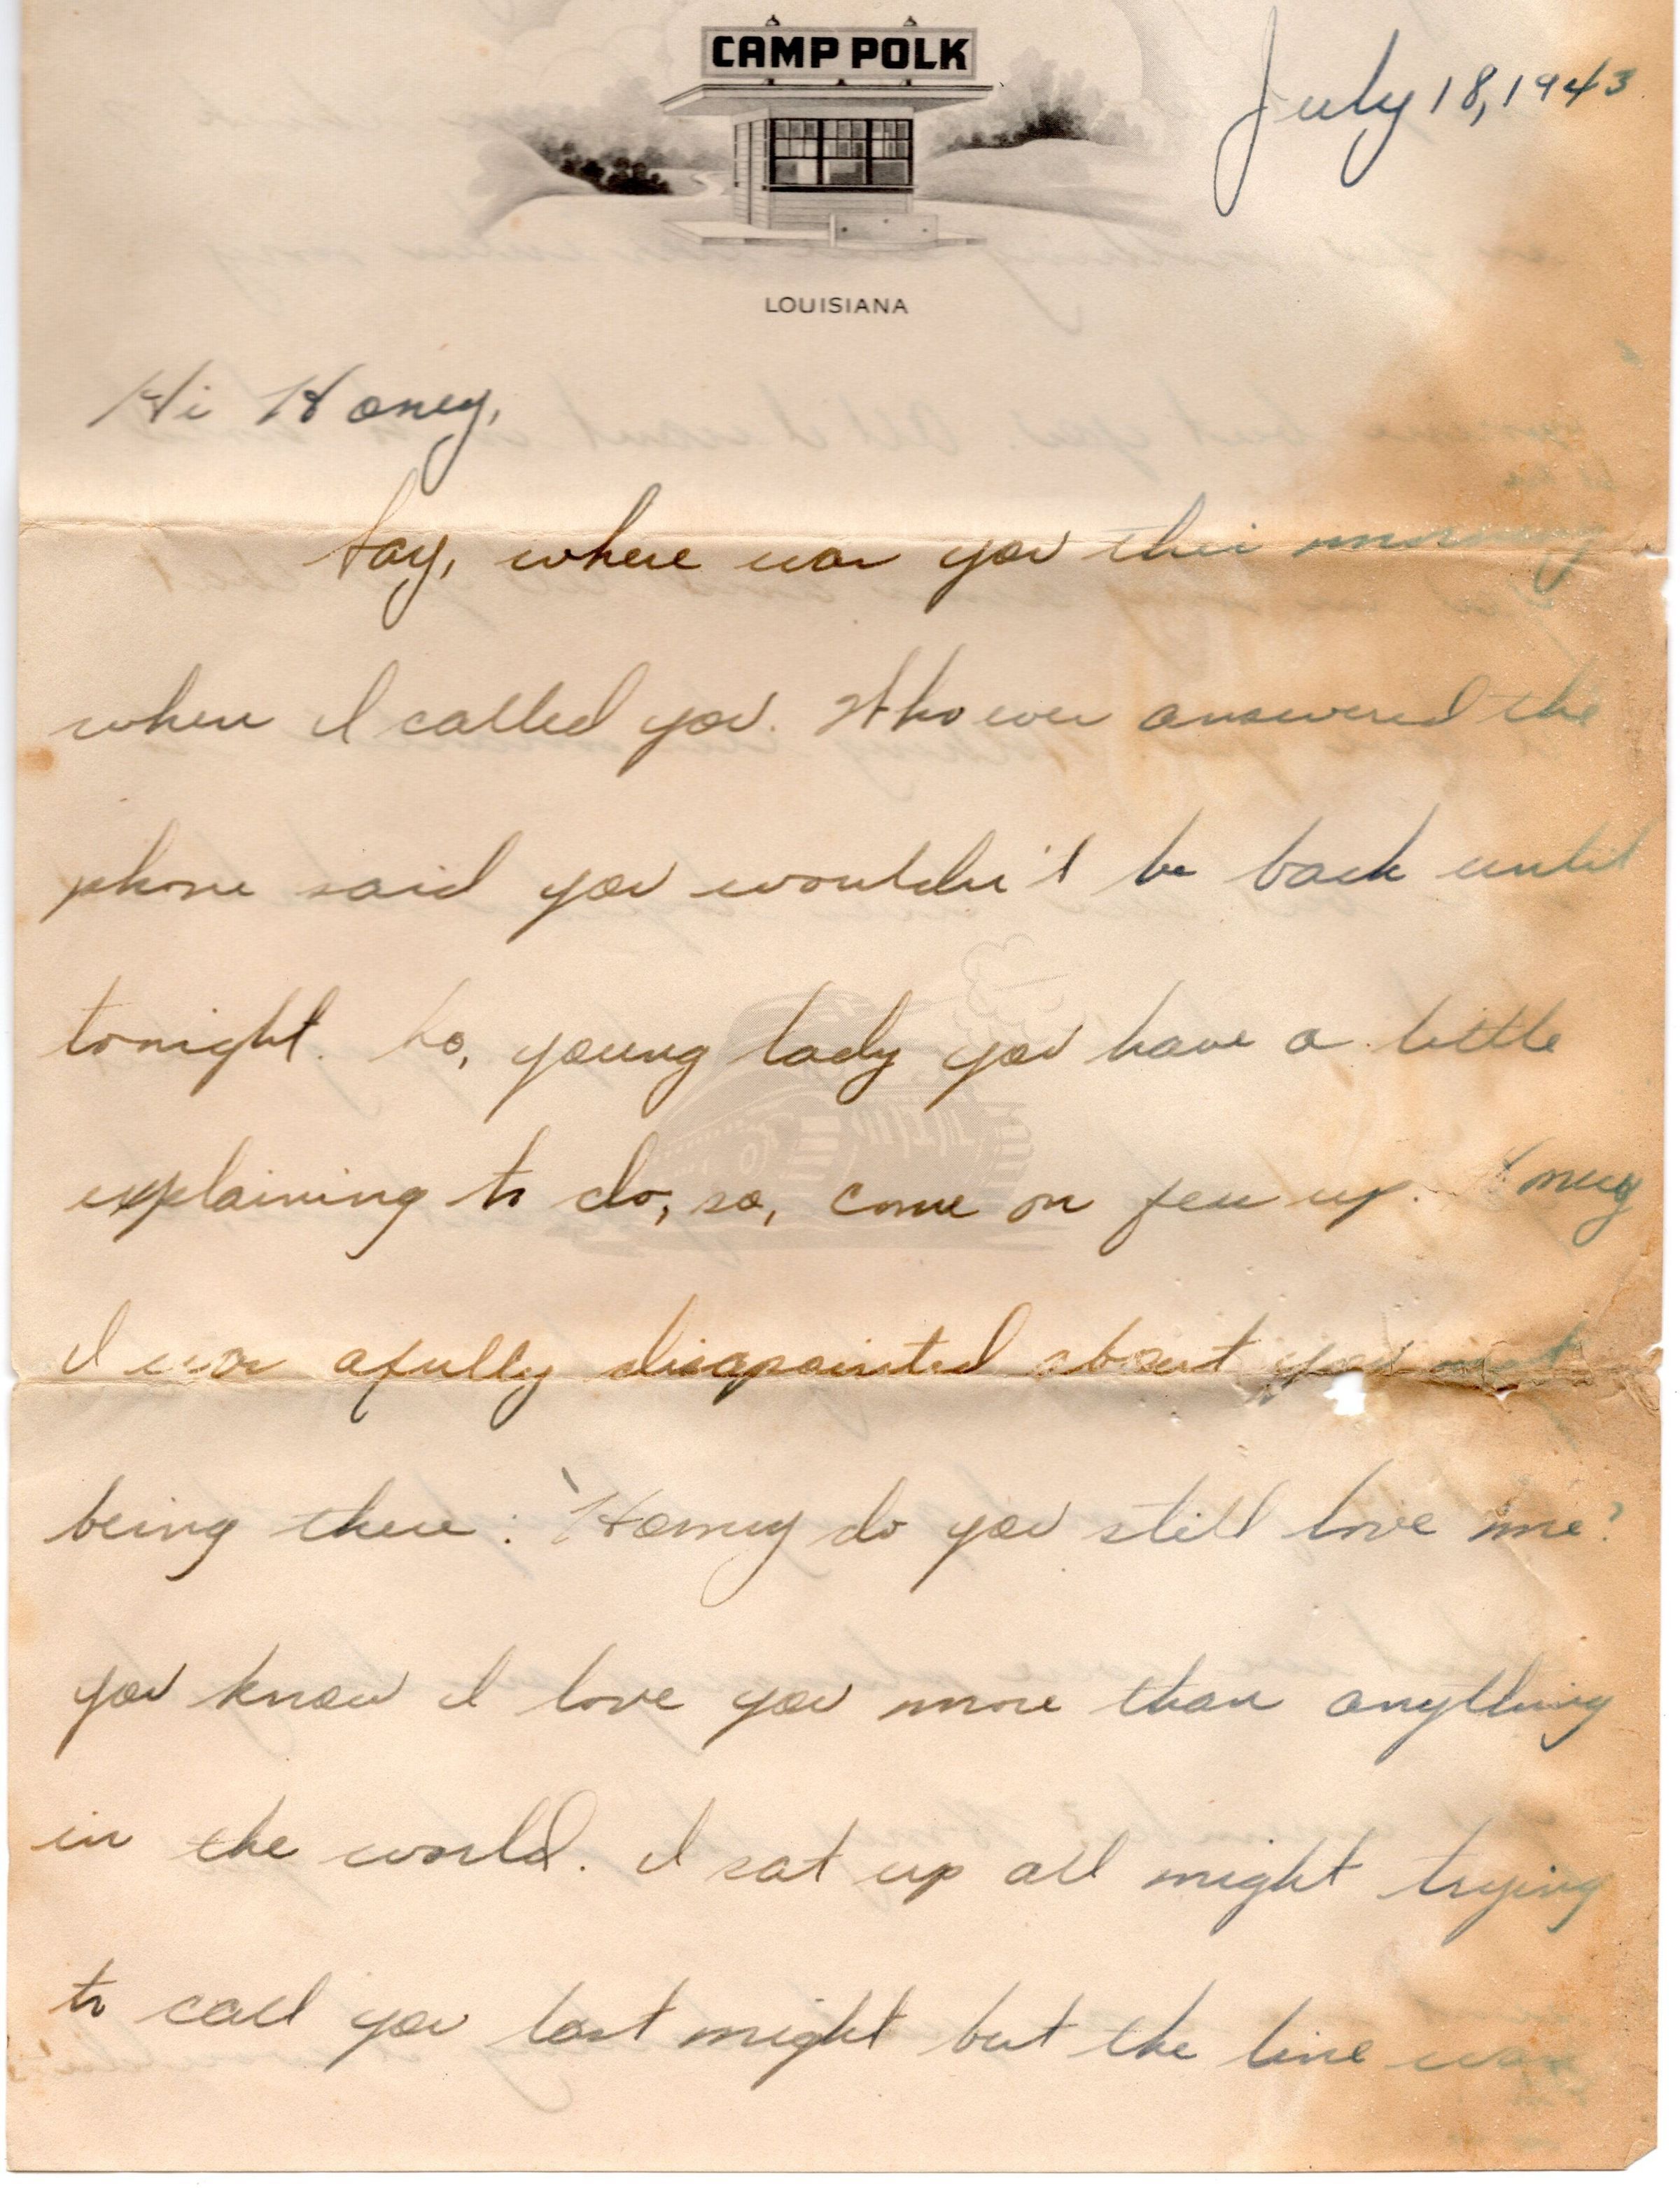 CAMP POLK
July 18, 1943
LOUISIANA
Hi Honey,
Say, where was you this morning
when I called you. Who ever answered the
phone said you wouldn't be back until
tonight. So, young lady you have a little
explaining to do, so, come on fess up.
I was afully disapointed about you not
being there. Honey do you still love me?
you know I love you more than anything
in the world. I sat up all night trying
to call you last night but the line was